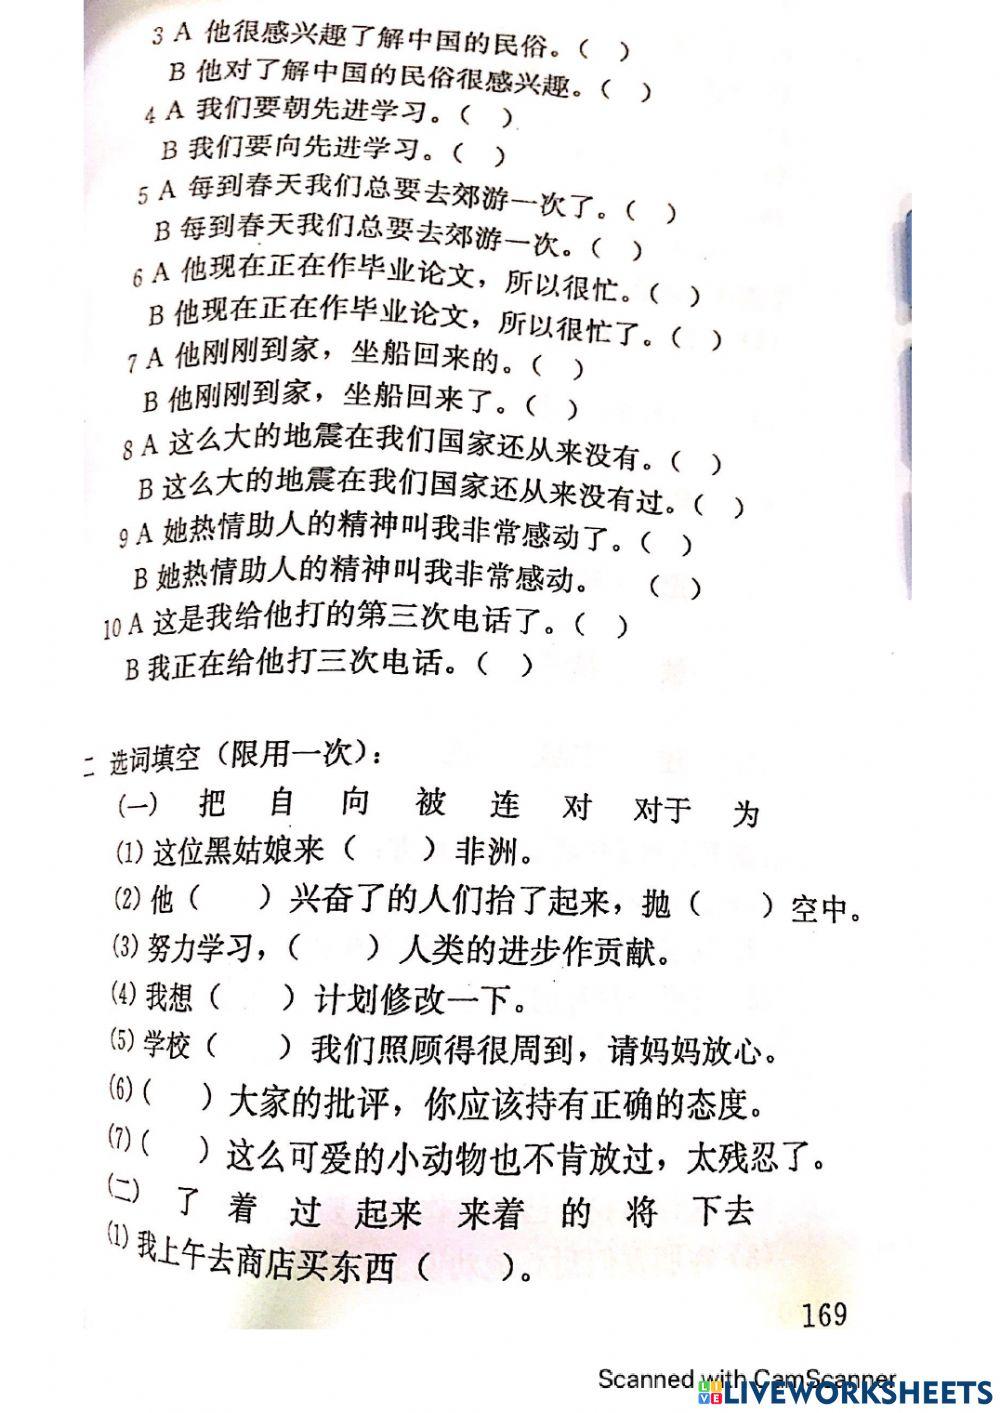 3 A 他很感兴趣了解中国的民俗。(  )
B 他对了解中国的民俗很感兴趣。(  )
4 A 我们要朝先进学习。(  )
B 我们要向先进学习。(  )
5 A 每到春天我们总要去郊游一次了。(  )
B 每到春天我们总要去郊游一次。(  )
6 A 他现在正在作毕业论文，所以很忙。(  )
B 他现在正在作毕业论文，所以很忙了。(  )
7 A 他刚刚到家，坐船回来的。(  )
B 他刚刚到家，坐船回来了。(  )
8 A 这么大的地震在我们国家还从来没有。(  )
B 这么大的地震在我们国家还从来没有过。(  )
9 A 她热情助人的精神叫我非常感动了。(  )
B 她热情助人的精神叫我非常感动。 (  )
10 A 这是我给他打的第三次电话了。(  )
B 我正在给他打三次电话。(  )
二 选词填空（限用一次）：
(一) 把 自 向 被 连 对 对于 为
(1) 这位黑姑娘来（ ）非洲。
(2) 他（ ）兴奋了的人们抬了起来，抛（ ）空中。
(3) 努力学习，（ ）人类的进步作贡献。
(4) 我想（ ）计划修改一下。
(5) 学校（ ）我们照顾得很周到，请妈妈放心。
(6)（ ）大家的批评，你应该持有正确的态度。
(7)（ ）这么可爱的小动物也不肯放过，太残忍了。
(二) 了 着 过 起来 来着 的 将 下去
(1) 我上午去商店买东西（ ）。
169
Scanned with CamScanner
LIVEWORKSHEETS